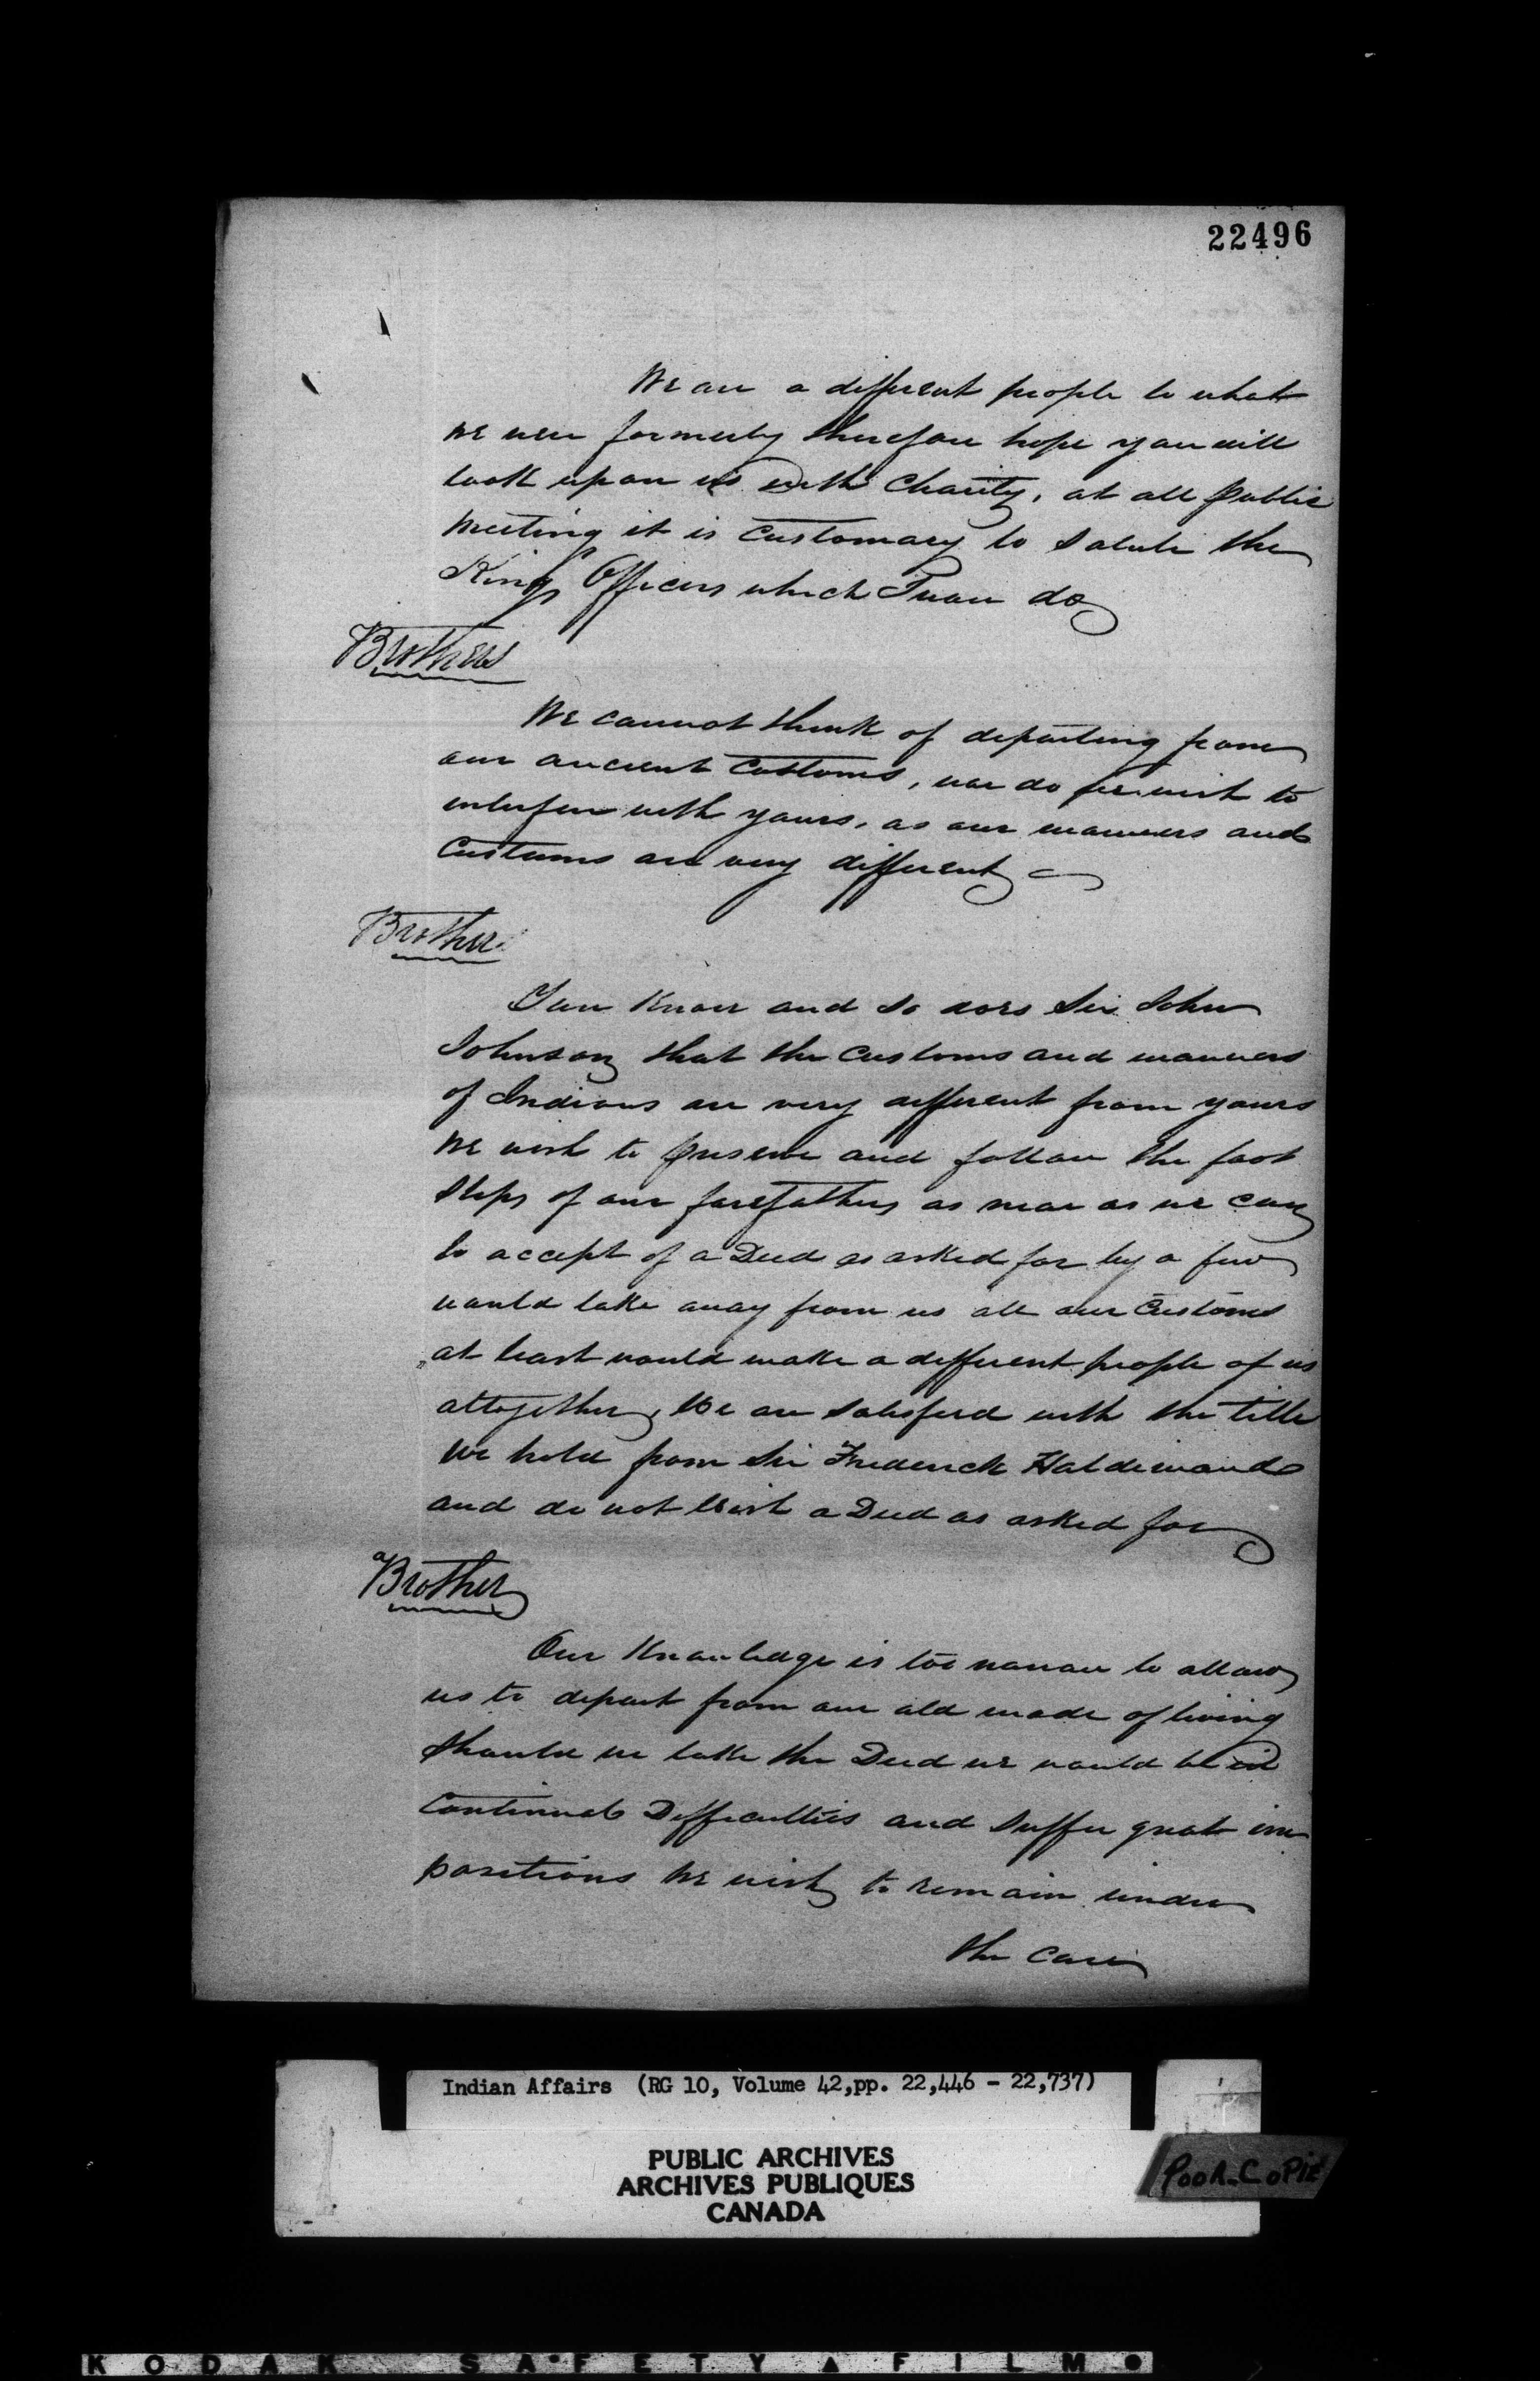 22496
We are a different people to what
we were formerly therefore hope you will
look upon us with Charity, at all public
meeting it is Customary to salute the
King's Officers which I now do
Brothers
We cannot think of departing from
our ancient Customs, nor do we wish to
interfere with yours, as our manners and
Customs are very different
Brother
You know and so does Sir John
Johnson that the Customs and manners
of Indians are very different from yours
we wish to preserve and follow the foot
steps of our forefathers as near as we can
to accept of a Deed as asked for by a few
would take away from us all our Customs
at least would make a different people of us
altogether, We are satisfied with the title
we hold from Sir Frederick Haldimand
and do not wish a Deed as asked for
Brother
Our Knowledge is too narrow to allow
us to depart from our old mode of living
should we take the Deed we would be in
Continual Difficulties and suffer great im
positions we wish to remain under
the care
Indian Affairs (RG 10, Volume 42,pp. 22,446 - 22,737)
PUBLIC ARCHIVES
ARCHIVES PUBLIQUES
CANADA
POOR COPIE
KODAK SAFETY FILM